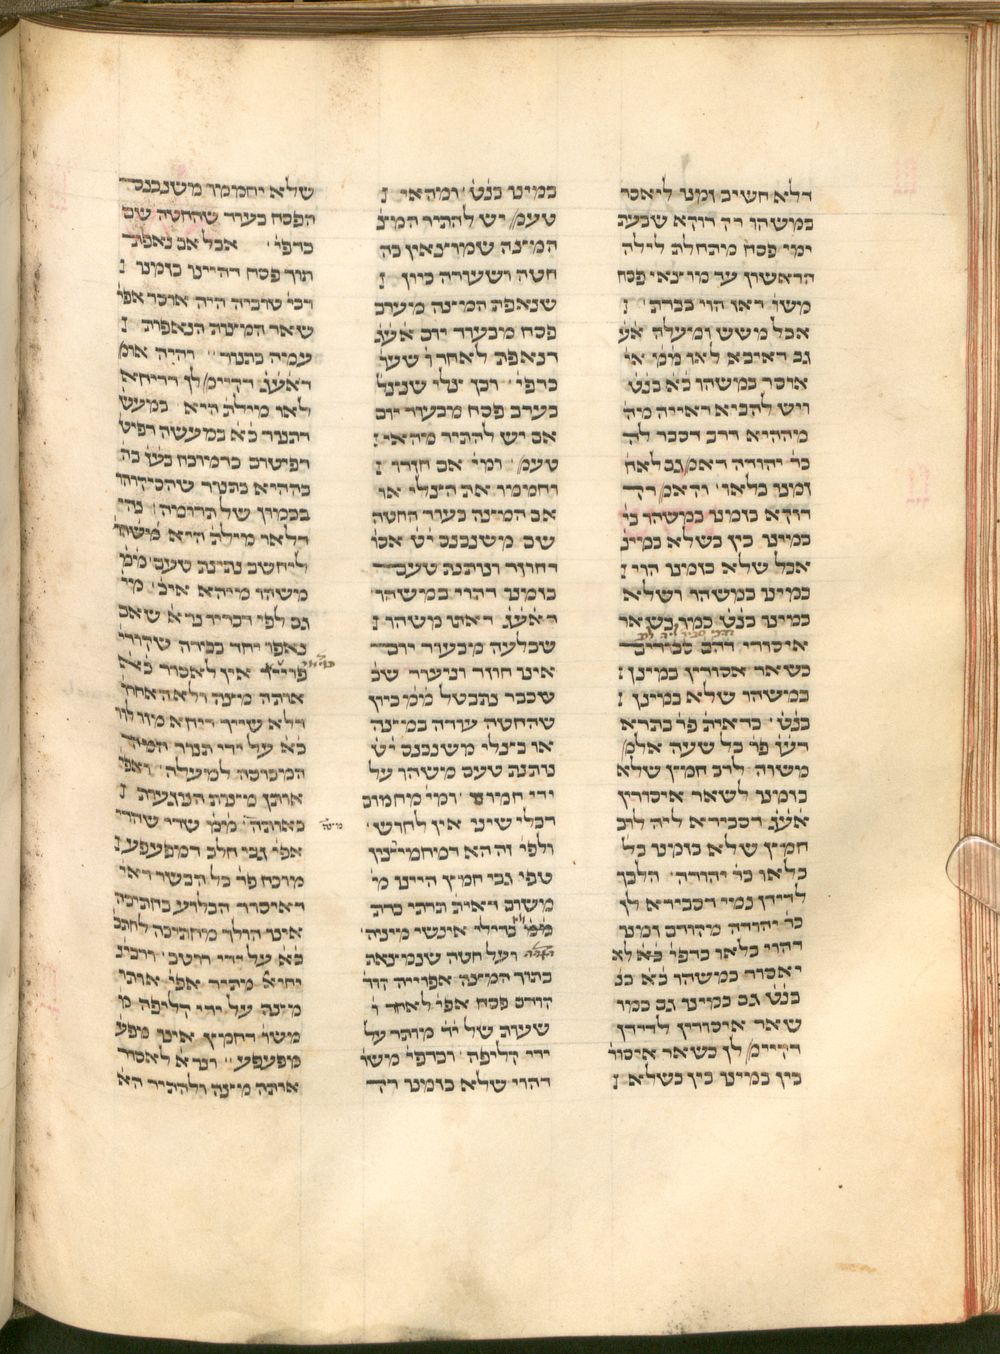 דלא חשיב זמנו ליאסר
במשהו רק דוקא שבעת
ימי פסח מתחלת לילה
הראשון עד מוצאי פסח
משו׳ דאו הוי בכרת׳
אבל משש ומעלה אע
גב דאיכא לאו ממו׳ אי
אוסר במשהו כא בנט
ויש להביא ראייה מה
מההיא דרב דסבר לה
כר׳ יהודה דאמ׳ גם לאח׳
זמנו בלאו׳ וקאמ׳ רק
דוקא בזמנו במשהו בי׳
במינו בין בשלא במינ׳
אבל שלא בזמנו הוי
במינו במשהו ושלא
במינו בנט׳ כמו בשאר
איסורי׳
בשאר אסורין במינן
במשהו שלא במינן
בנט׳ כדאית׳ פר׳ בתרא
דעז׳ פר׳ כל שעה אלמ׳
משוה לרב חמץ שלא
בזמנו לשאר איסורין
אעג דסבירא ליה לרב
חמץ שלא בזמנו כל׳
בלאו כר׳ יהודה׳ הלכך
לדידן נמי דסבירא לן
כר׳ יהודה מקודם זמנו
דהוי בלאו כדפי׳ כא לא
יאסור במשהו כא בנ׳
בנט גם במינו גם כמו
שאר איסורין לדידן
דקיימ׳ לן בשאר איסור׳
בין במינו בין בשלא
במינו בנט׳ ומהאי
טעמ׳ יש להתיר המצ׳
המצה שמוצאין בה
חטה ושעורה כיון
שנאפת המצה מערב
פסח מבעוד יום אעג
דנאפת לאחר ו׳ שעו׳
כדפי׳ וכן צלי שניצל׳
בערב פסח מבעוד יום
אם יש להתיר מהאי
טעמ׳ ומי׳ אם חזרו
וחממו את הצלי או
אם המצה בעוד החטה
שם משנכנס יט אסו׳
דחוזר ונותנת טעם
בזמנו דהוי במשהו
דאעג דאתו משהו
שבלעה מבעוד יום
אינו חוזר וניעור שכ׳
שכבר נתבטל ממ׳ כיון
שהחטה עודה במצה
או בצלי משנכנס יט
נותנת טעם משהו על
ידי חמום ׳ומי׳ מחמום
דכלי שיני אין לחוש׳
ולפי׳ זה הא דמחמיצין
טפי גבי חמץ היינו מ׳
משום דאית׳ תרתי כרת
וממ׳ בדילי אינשי מיניה׳
ועל חטה שנמצאת
בתוך המצה אפוייה קוד׳
קודם פסח אפי׳ לאחר ו׳
שעות של יד׳ מותר על
ידי קליפה׳ וכדפי׳ משו׳
דהוי שלא בזמנו רק
שלא יחממו משנכנס
הפסח בעוד שהחטה שם
כדפי׳ אבל אם נאפת
תוך פסח דהיינו בזמנו
רבי׳ טוביה היה אוסר אפי׳
שאר המצות הנאפות
עמיה בתנור׳ והיה אומ׳
דאעג דקיימ׳ לן דריחא
לאו מילתא היא במעש׳
דתנור כא במעשה דפיט׳
דפיטום כדמוכח בעז בה
בההיא בתנור שהסיקוהו
בכמון של תרומה
דלאו מילתא היא משהו
ליחשב נתינת טעם׳ ממ׳
משהו מיהא איכ׳ מי׳
גם לפי דבריו נרא שאם
נאפו יחד בפורה שקורי׳
אין לאסור כא
אותה מצה ולא האחרו׳
דלא שייך ריחא מזו לזו
כא על ידי תנור המיה
המכוסה למעלה׳ ואפי׳
אותן מצות הנוגעות
באותה׳ ממ׳ שרי שהרי
אפי׳ גבי חלב דמפעפע
מוכח פר׳ כל הבשר דאי׳
דאיסור הבלוע בחתיכה
אינו הולך מחתיכה לחתכ׳
כא על ידי רוטב׳ ורבינו
יחיא׳ מתיר אפי׳ אותו׳
מצה על ידי קליפה מ׳
משו׳ דחמץ אינו מפע׳
מפעפע׳ ונרא׳ לאסור
אותה מצה ולהתיר הא׳